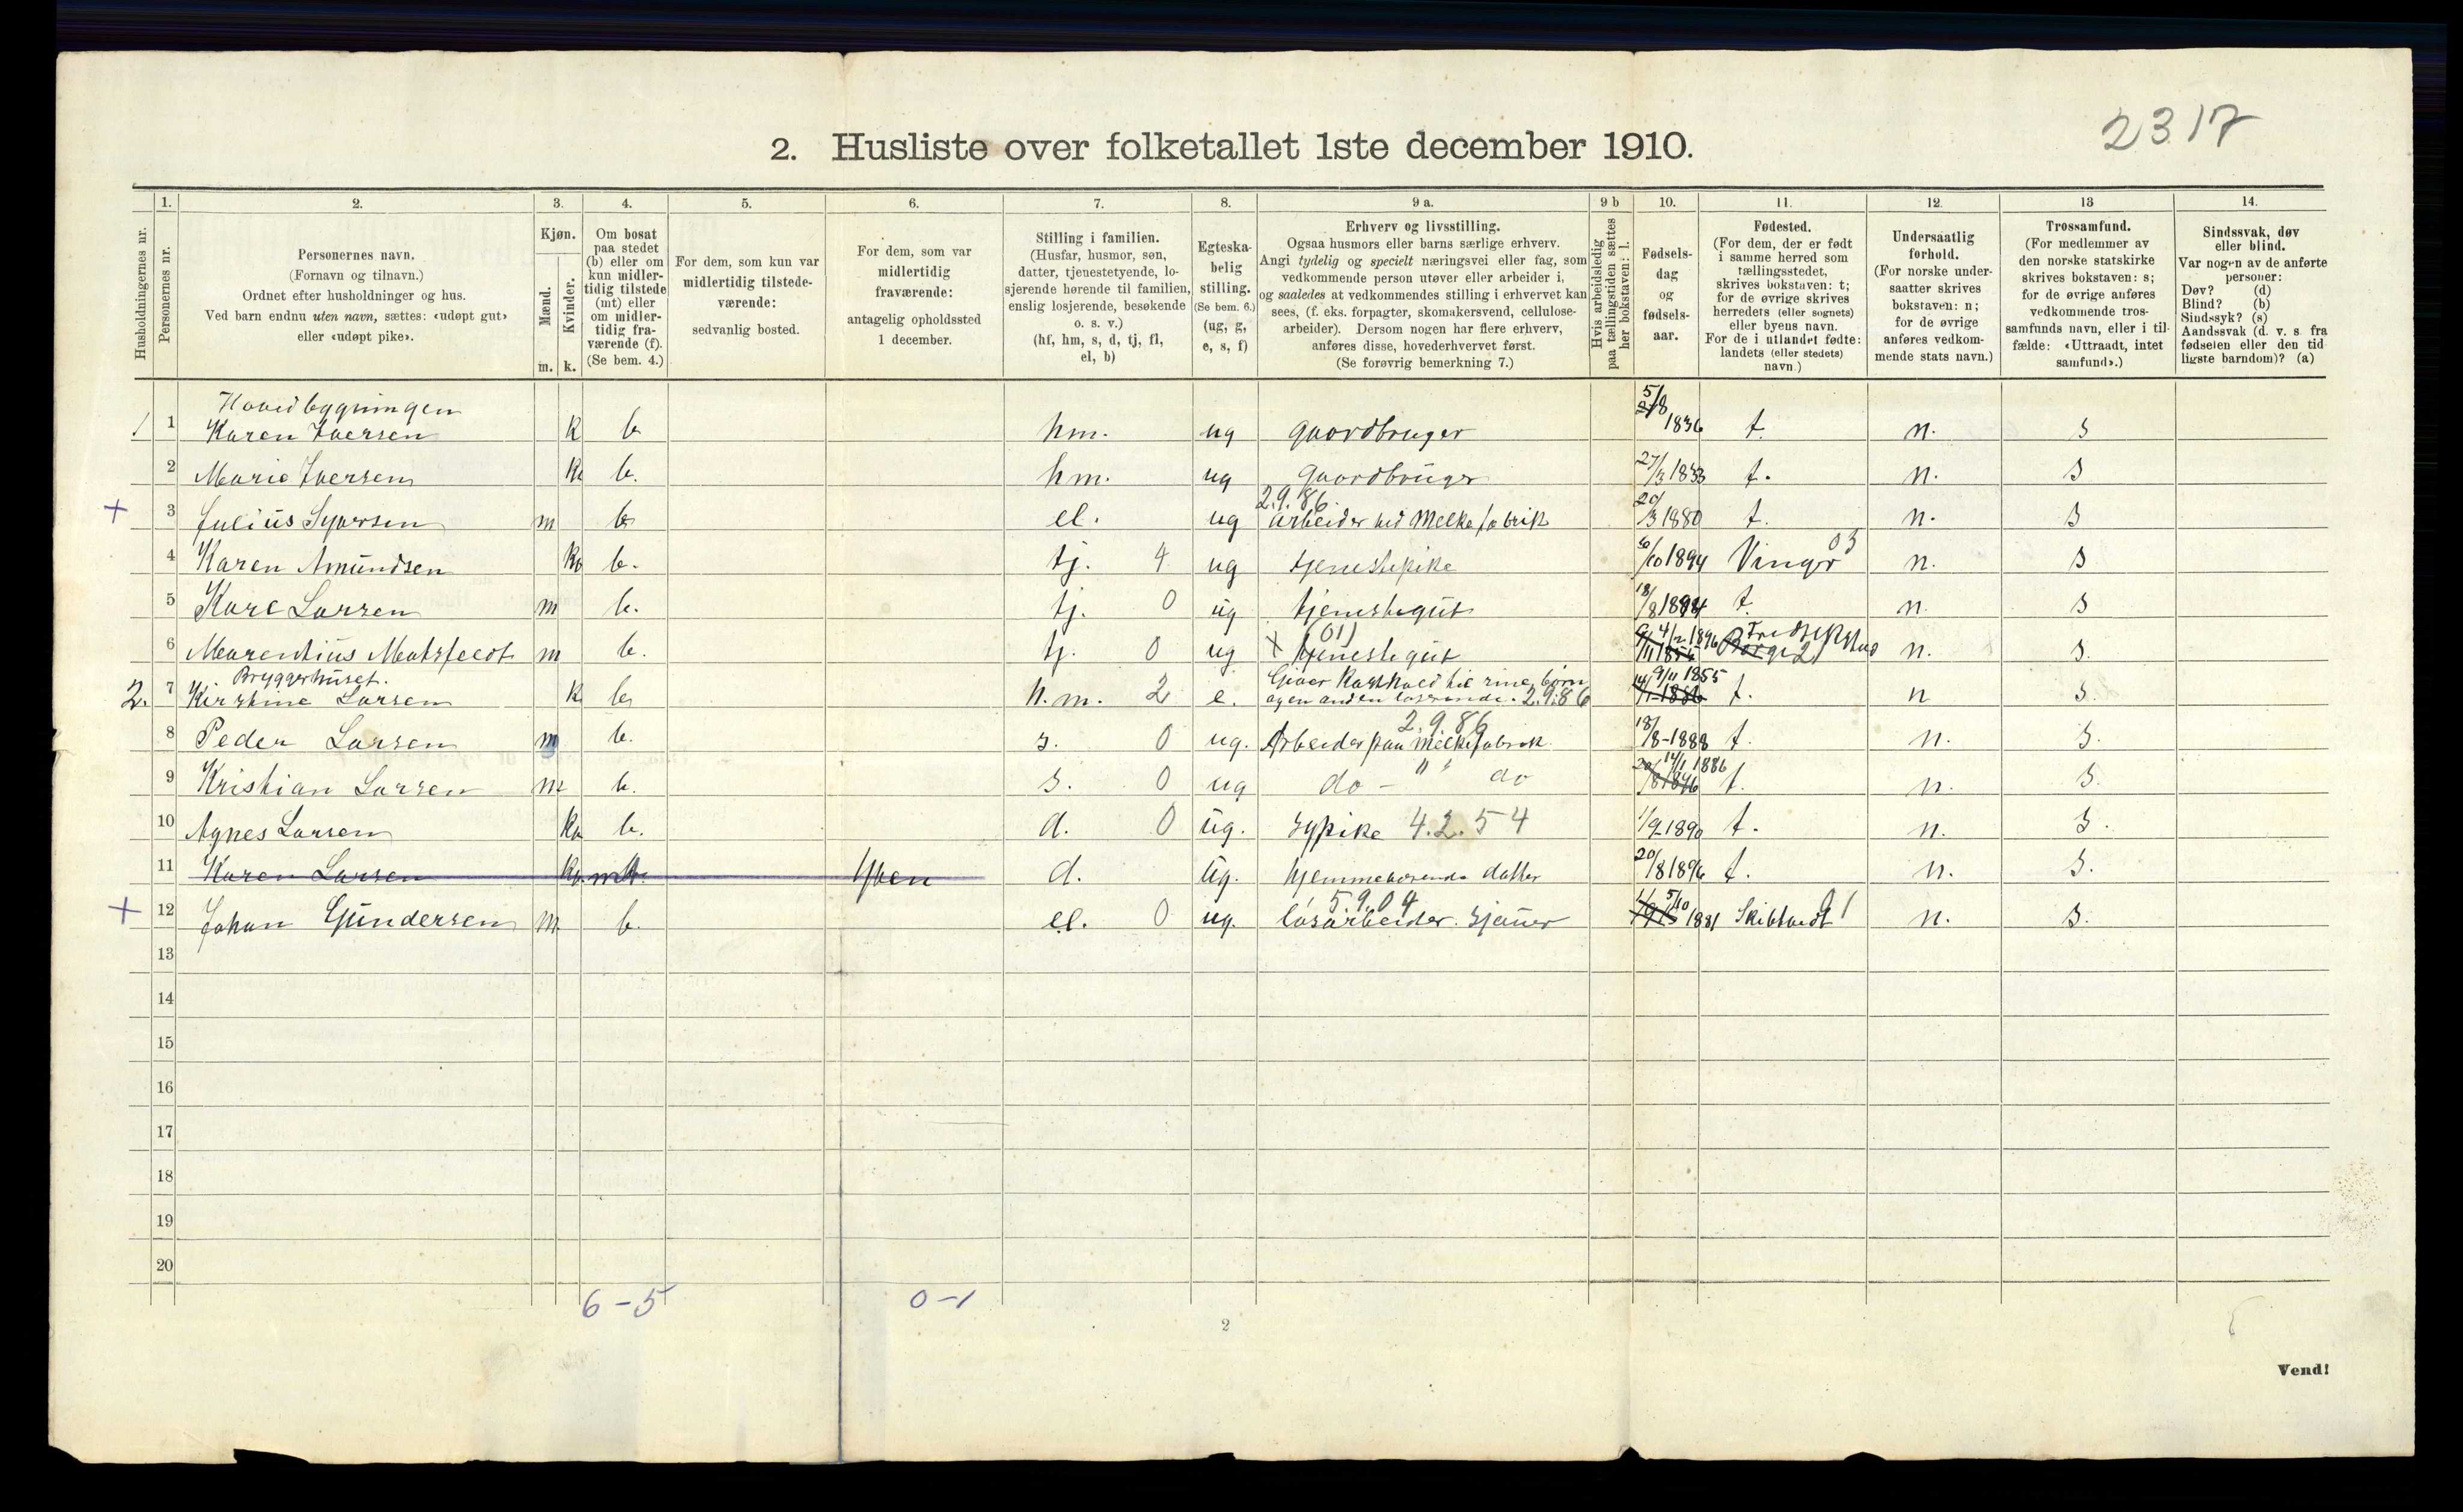 2317
2. Husliste over folketallet 1ste december 1910.
Husholdningernes nr.
1.
Personernes nr.
2.
Personernes navn.
(Fornavn og tilnavn.)
Ordnet efter husholdninger og hus.
Ved barn endnu uten navn, sættes: «udøpt gut»
eller «udøpt pike».
3.
Kjøn.
Mænd.
Kvinder.
m. k.
4.
Om bosat
paa stedet
(b) eller om
kun midler-
tidig tilstede
(mt) eller
om midler-
tidig fra-
værende (f).
(Se bem. 4.)
5.
For dem, som kun var
midlertidig tilstede-
værende:
sedvanlig bosted.
6.
For dem, som var
midlertidig
fraværende:
antagelig opholdssted
1 december.
7.
Stilling i familien.
(Husfar, husmor, søn,
datter, tjenestetyende, lo-
sjerende hørende til familien,
enslig losjerende, besøkende
o. s. v.)
(hf, hm, s, d, tj, fl,
el, b)
8.
Egteska-
belig
stilling.
(Se bem. 6.)
(ug, g,
e, s, f)
9 a.
Erhverv og livsstilling.
Ogsaa husmors eller barns særlige erhverv.
Angi tydelig og specielt næringsvei eller fag, som
vedkommende person utøver eller arbeider i,
og saaledes at vedkommendes stilling i erhvervet kan
sees, (f. eks. forpagter, skomakersvend, cellulose-
arbeider). Dersom nogen har flere erhverv,
anføres disse, hovederhvervet først.
(Se forøvrig bemerkning 7.)
9 b
Hvis arbeidsledig
paa tællingstiden sættes
her bokstaven: l.
10.
Fødsels-
dag
og
fødsels-
aar.
11.
Fødested.
(For dem, der er født
i samme herred som
tællingsstedet,
skrives bokstaven: t;
for de øvrige skrives
herredets (eller sognets)
eller byens navn.
For de i utlandet fødte:
landets (eller stedets)
navn.)
12.
Undersaatlig
forhold.
(For norske under-
saatter skrives
bokstaven: n;
for de øvrige
anføres vedkom-
mende stats navn.)
13
Trossamfund.
(For medlemmer av
den norske statskirke
skrives bokstaven: s;
for de øvrige anføres
vedkommende tros-
samfunds navn, eller i til-
fælde: «Uttraadt, intet
samfund».)
14.
Sindssvak, døv
eller blind.
Var nogen av de anførte
personer:
Døv? (d)
Blind? (b)
Sindssyk? (s)
Aandssvak (d. v. s. fra
fødselen eller den tid
ligste barndom)? (a)
Hovedbygningen
1 1 Karen Iversen k b hm. ug gaardbruger 5/8 1836 t. n. s
2 Marie Iversen k b. hm. ug gaardbruger 27/3 1833 t. n. s
2.9.86
+ 3 Julius Syversen m b el. ug arbeider ved Melkefabrik 20/3 1880 t. n. s
4 Karen Amundsen k b. tj. 4 ug tjenestepike /10 1894 Vinger 03 n. s
5 Karl Larsen m b. tj. 0 ug tjenestegut 18/8 1894 t. n. s
(01) 4/2 1896 Fredrikstad
6 Marentius m b. tj. 0 ug x tjenestegut 9/11 1855 Borge 2 n. s.
Bryggerhuset. Giver Kosthold til sine børn 9/11 1855
2. 7 Kirstine Larsen k b h.m. 2 e. og en anden losjerende. 2.9.86 14/1-1886 t. n s.
2.9.86
8 Peder Larsen m b. s. 0 ug. Arbeider paa melkefabrik 18/8-1888 t. n. s.
14/1 1886
9 Kristian Larsen m b. s. 0 ug do - " do 20/8 1896 t. n. s.
10 Agnes Larsen k b. d. 0 ug. sypike 4.2.54 1/9 1890 t. n. s.
11 Karen Larsen k. mt d. ug. hjemmeværende datter 20/8 1896 t. n. s.
5.9.04 5/10
+ 12 Johan Gundersen m. b. el. 0 ug. løsarbeider. sjauer 1881 Skibtvedt 01 n. s.
13
14
15
16
17
18
19
20
6-5
0-1
2
Vend!